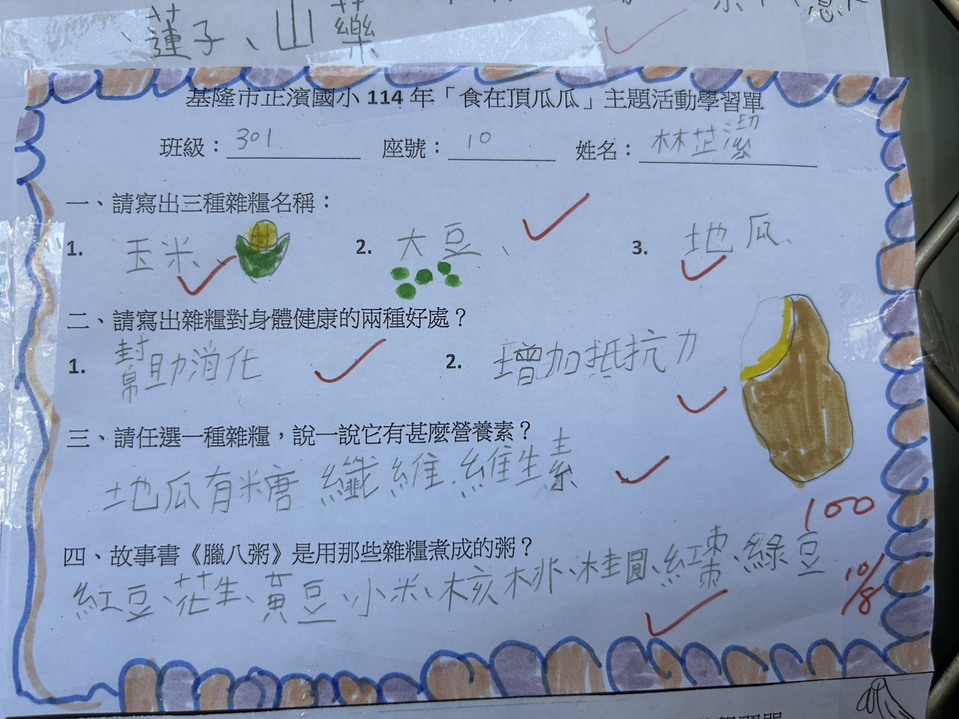 、蓮子、山藥
基隆市正濱國小 114 年「食在頂瓜瓜」主題活動學習單
班級：301 座號：10 姓名：林芷潔
一、請寫出三種雜糧名稱：
1. 玉米、 2. 大豆、 3. 地瓜、
二、請寫出雜糧對身體健康的兩種好處？
1. 幫助消化 2. 增加抵抗力
三、請任選一種雜糧，說一說它有甚麼營養素？
地瓜有糖 纖維.維生素
100
四、故事書《臘八粥》是用那些雜糧煮成的粥？
紅豆、花生、黃豆、小米、核桃、桂圓、紅棗、綠豆
10/8